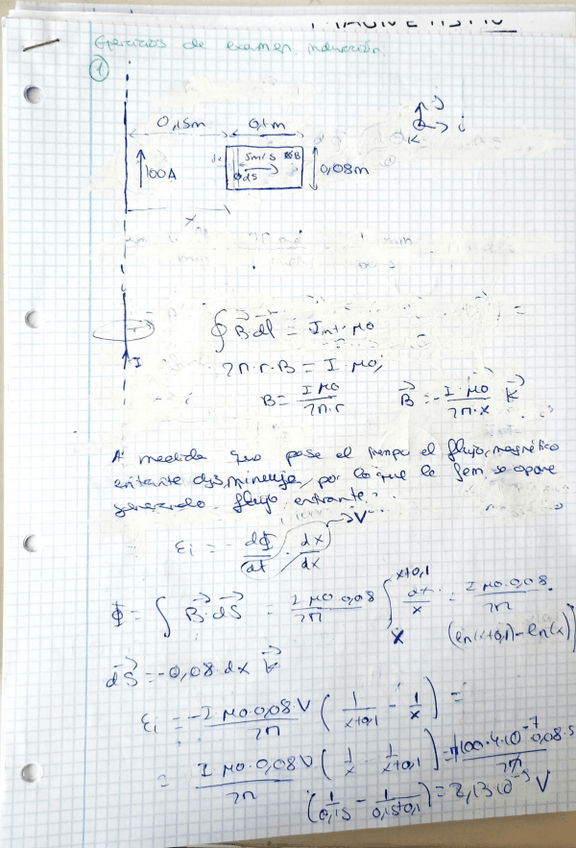 MAGNETISMO
Ejercicios de examen inducción
1
0,15m 0,1m
j
i
K
100A
5m/s ⊗B
dS
0,08m
x
I
∮ B⃗·dl⃗ = Iint·μ0
2π·r·B = I·μ0;
B = I μ0 / 2π·r    B⃗ = - I·μ0 / 2π·x K⃗
A medida que pase el tiempo el flujo magnético
entrante disminuye, por lo que la fem se opone
generando flujo entrante.
εi = - dΦ/dt · dx/dx → V
Φ = ∫ B⃗·dS⃗ = I μ0·0,08 / 2π ∫ₓ^(x+0,1) dx/x = I μ0·0,08 / 2π ·
(ln(x+0,1) - ln(x))
dS⃗ = -0,08·dx K⃗
εi = -I μ0·0,08 V / 2π ( 1/(x+0,1) - 1/x ) =
= I μ0·0,08 V / 2π ( 1/x - 1/(x+0,1) ) = 100·4·10⁻⁷·0,08·5 / 2π
( 1/0,15 - 1/(0,15+0,1) ) = 2,13·10⁻⁵ V